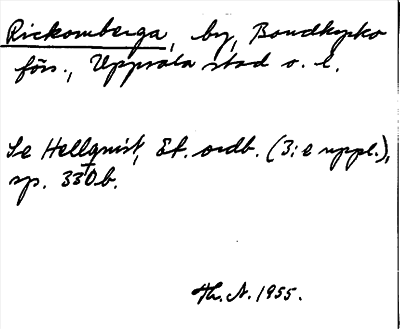 Rickomberga, by, Bondkyrko
förs., Uppsala stad o. l.
Se Hellquist, Et. ordb. (3:e uppl.),
sp. 330b.
Th. A. 1955.